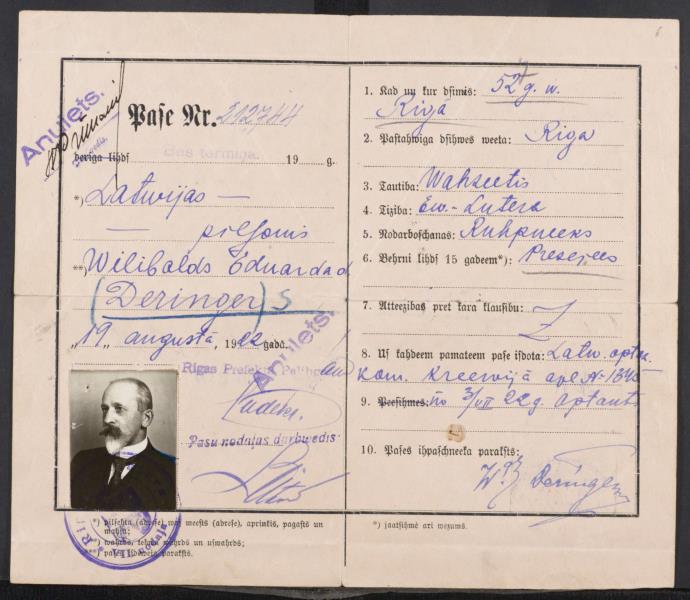 Anulets.
Pase Nr. 212744
deriga lihds bes termiņa. 19 g.
*) Latwijas —
— pilsonis
**) Wilibalds Eduards d
(Deringer) s
"19" augustā, 1922 gada.
Anulets.
Rigas Prefekts
Pasu nodaļas darbwedis
*) pilsehta (adrese) wai meests (adrese), aprinkis, pagasts un
mahja;
**) wahrds, tehwa wahrds un uswahrds;
***) pases isdeweja paraksts.
6
1. Kad un kur dsimis: 52 g. w.
Rigā
2. Pastahwiga dsihwes weeta: Riga
3. Tautiba: Wahzeetis
4. Tiziba: Ew.-Lutera
5. Nodarboschanas: Ruhpneeks
6. Behrni lihds 15 gadeem*): Prezejees
7. Atteezibas pret kara klausibu:
8. Us kahdeem pamateem pase isdota: Latw. optu.
kom. Kreewijā apl. № 1345
9. Peesihmes: no 3/VII 22 g. optants
10. Pases ihpaschneeka paraksts:
W. Deringer
*) jaatsihmē ari wezums.